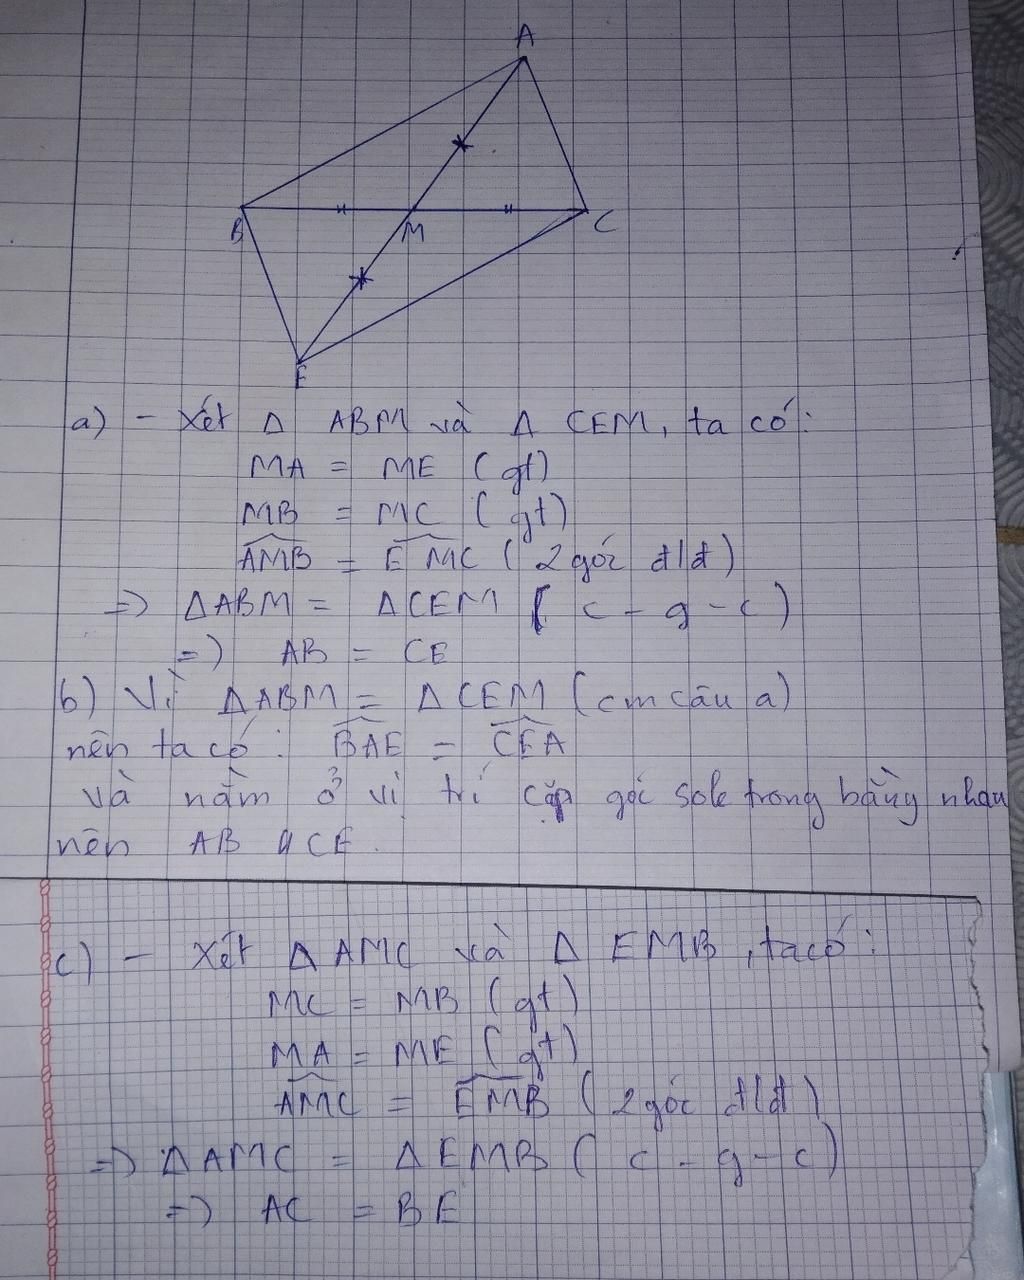 A
B
M
C
E
a) - Xét Δ ABM và Δ CEM, ta có:
MA = ME (gt)
MB = MC (gt)
\widehat{AMB} = \widehat{EMC} (2 góc đ/đ)
=> ΔABM = ΔCEM (c - g - c)
=> AB = CE
b) Vì ΔABM = ΔCEM (cm câu a)
nên ta có: \widehat{BAE} = \widehat{CEA}
và nằm ở vị trí cặp góc sole trong bằng nhau
nên AB // CE.
c) - Xét Δ AMC và Δ EMB, ta có:
MC = MB (gt)
MA = ME (gt)
\widehat{AMC} = \widehat{EMB} (2 góc đ/đ)
=> ΔAMC = ΔEMB (c - g - c)
=> AC = BE